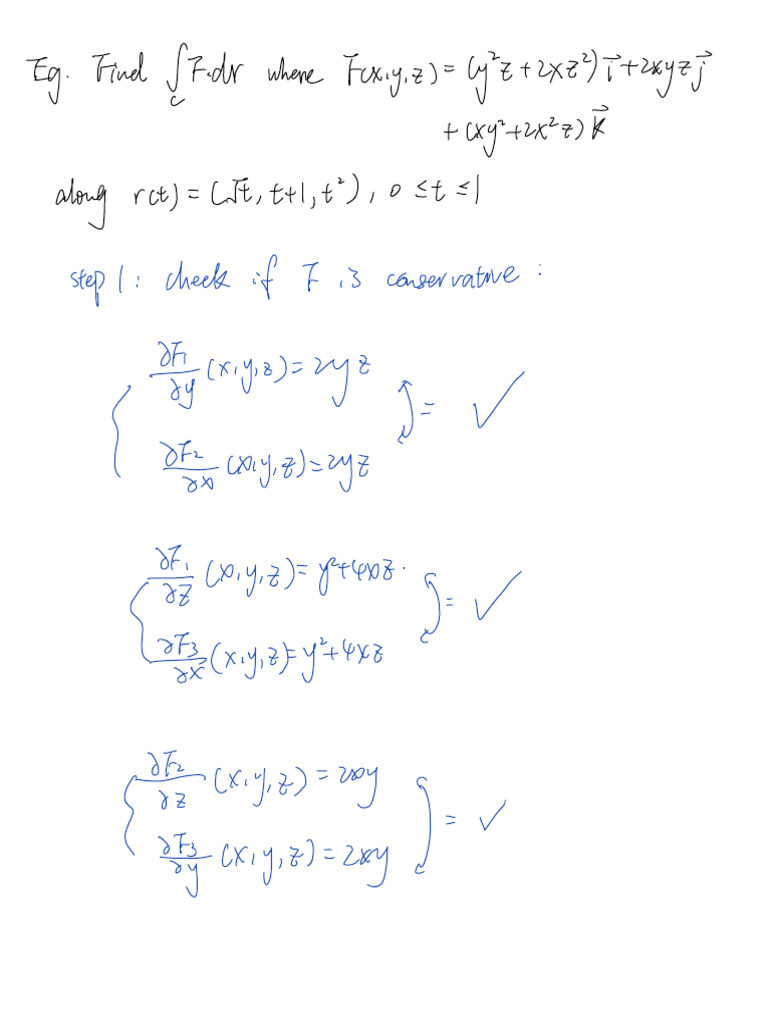 Eg. Find ∫_C F·dr where F(x,y,z) = (y²z+2xz²)i⃗+2xyzj⃗
+(xy²+2x²z)k⃗
along r(t) = (√t, t+1, t²), 0≤t≤1
step 1: check if F is conservative:
∂F₁/∂y (x,y,z)=2yz
= ✓
∂F₂/∂x (x,y,z)=2yz
∂F₁/∂z (x,y,z)=y²+4xz.
= ✓
∂F₃/∂x (x,y,z)=y²+4xz
∂F₂/∂z (x,y,z)=2xy
= ✓
∂F₃/∂y (x,y,z)=2xy